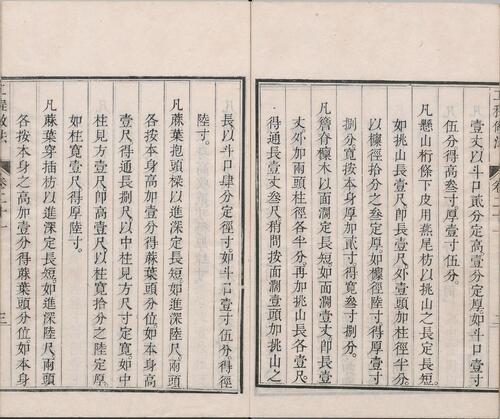 工程做法 卷二十一 二
壹丈以斗口貳分定厚如斗口壹寸
伍分得高叁寸厚壹寸伍分
凡懸山桁條下皮用燕尾枋以挑山之長定長短
如挑山長壹尺即長壹尺外壹頭加柱徑半分
以檁徑拾分之叁定厚如檁徑陸寸得厚壹寸
捌分寬按本身厚加貳寸得寬叁寸捌分
凡簷脊檁木以面濶定長短如面濶壹丈即長壹
丈外加兩頭柱徑各半分再加挑山長各壹尺
得通長壹丈叁尺稍間按面濶壹頭加挑山之
長以斗口肆分定徑寸如斗口壹寸伍分得徑
陸寸
凡蔴葉抱頭樑以進深定長短如進深陸尺兩頭
各按本身高加壹分得蔴葉頭分位如本身高
壹尺得通長捌尺以中柱見方尺寸定寬如中
柱見方壹尺卽高壹尺以柱寬拾分之陸定厚
如柱寬壹尺得厚陸寸
凡蔴葉穿插枋以進深定長短如進深陸尺兩頭
各按本身之高加壹分得蔴葉頭分位如本身
工程做法 卷二十一 三